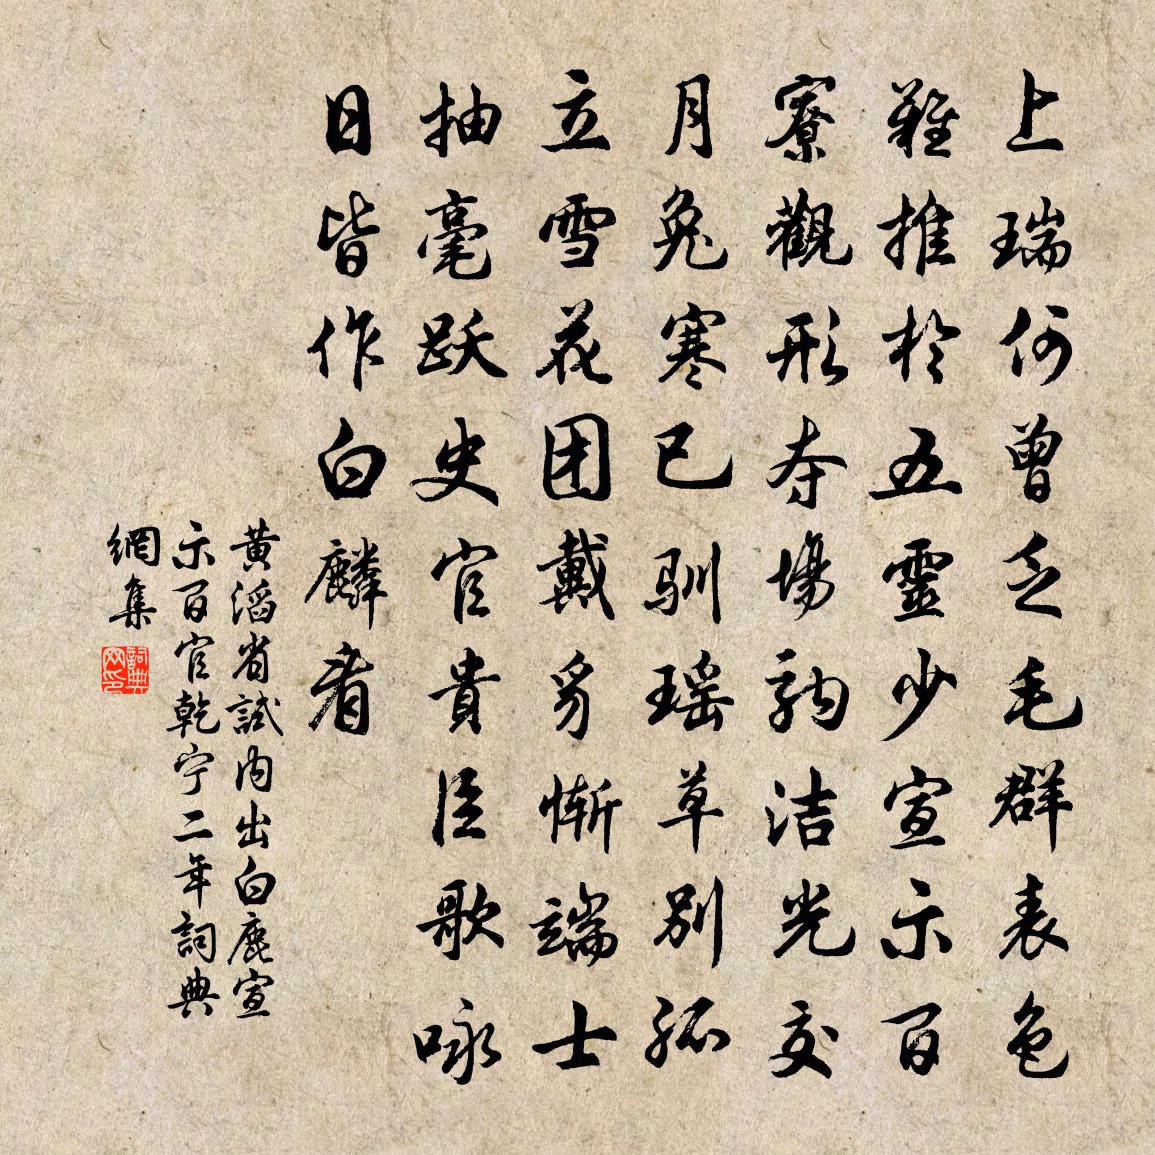 上瑞何曾乏毛群表色
難推於五靈少宣示百
寮觀形夺場驹洁光交
月兔寒已驯瑶草别孤
立雪花团戴豸慚端士
抽毫跃史官貴臣歌咏
日皆作白麟看
黄滔省試内出白鹿宣
示百官乾宁二年詞典
網集
詞典网印